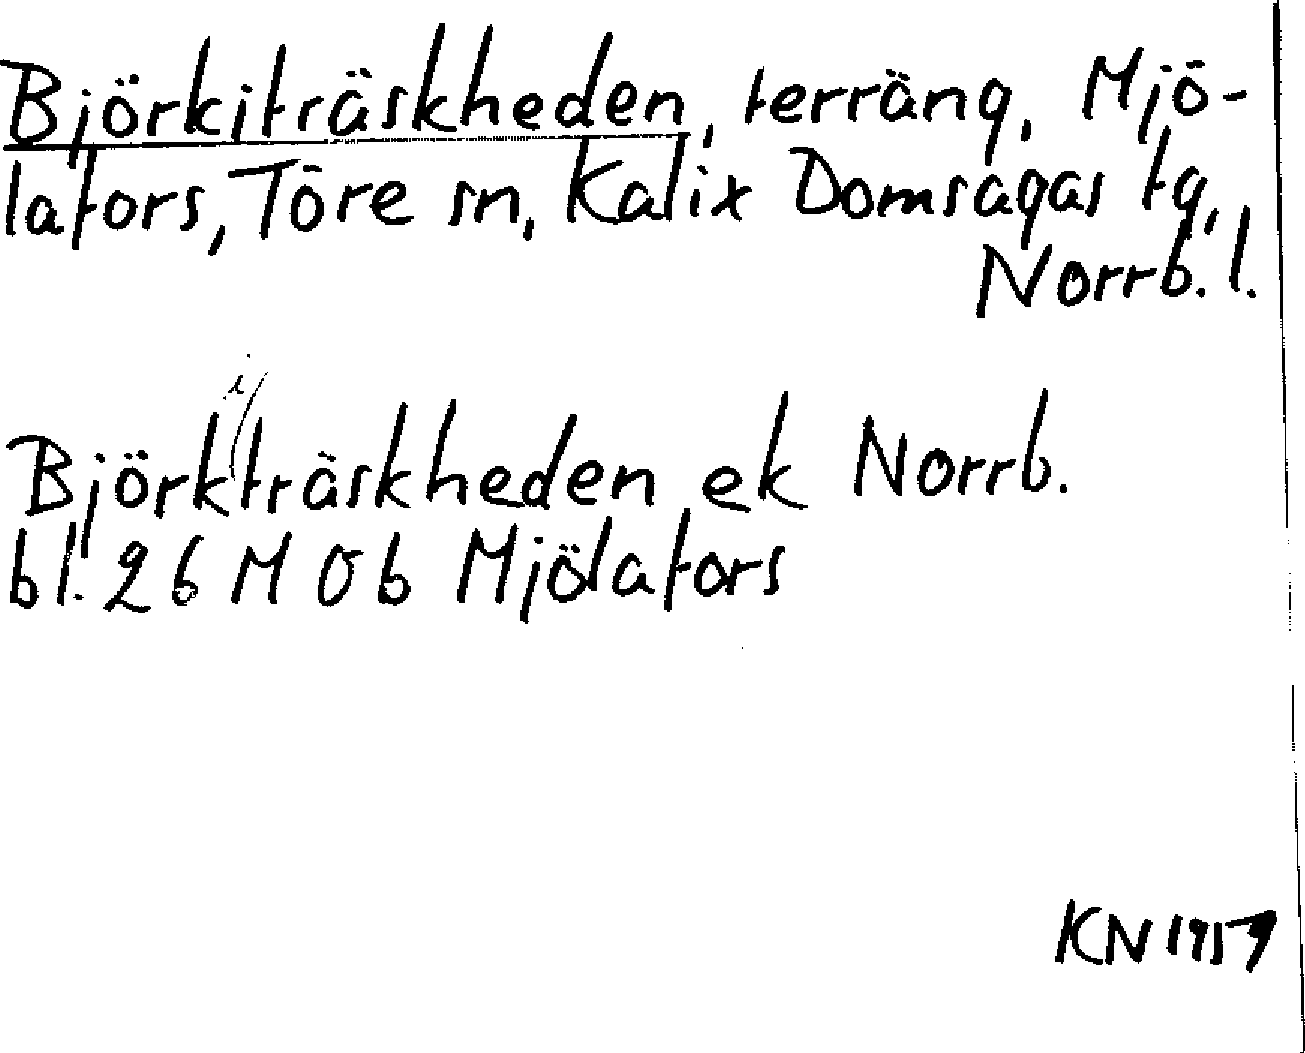 Björkiträskheden, terräng, Mjö-
lafors, Töre sn, Kalix Domsagas tg,
Norrb. l.
i
Björkträskheden ek Norrb.
bl. 26 M 0b Mjölafors
KN 1957